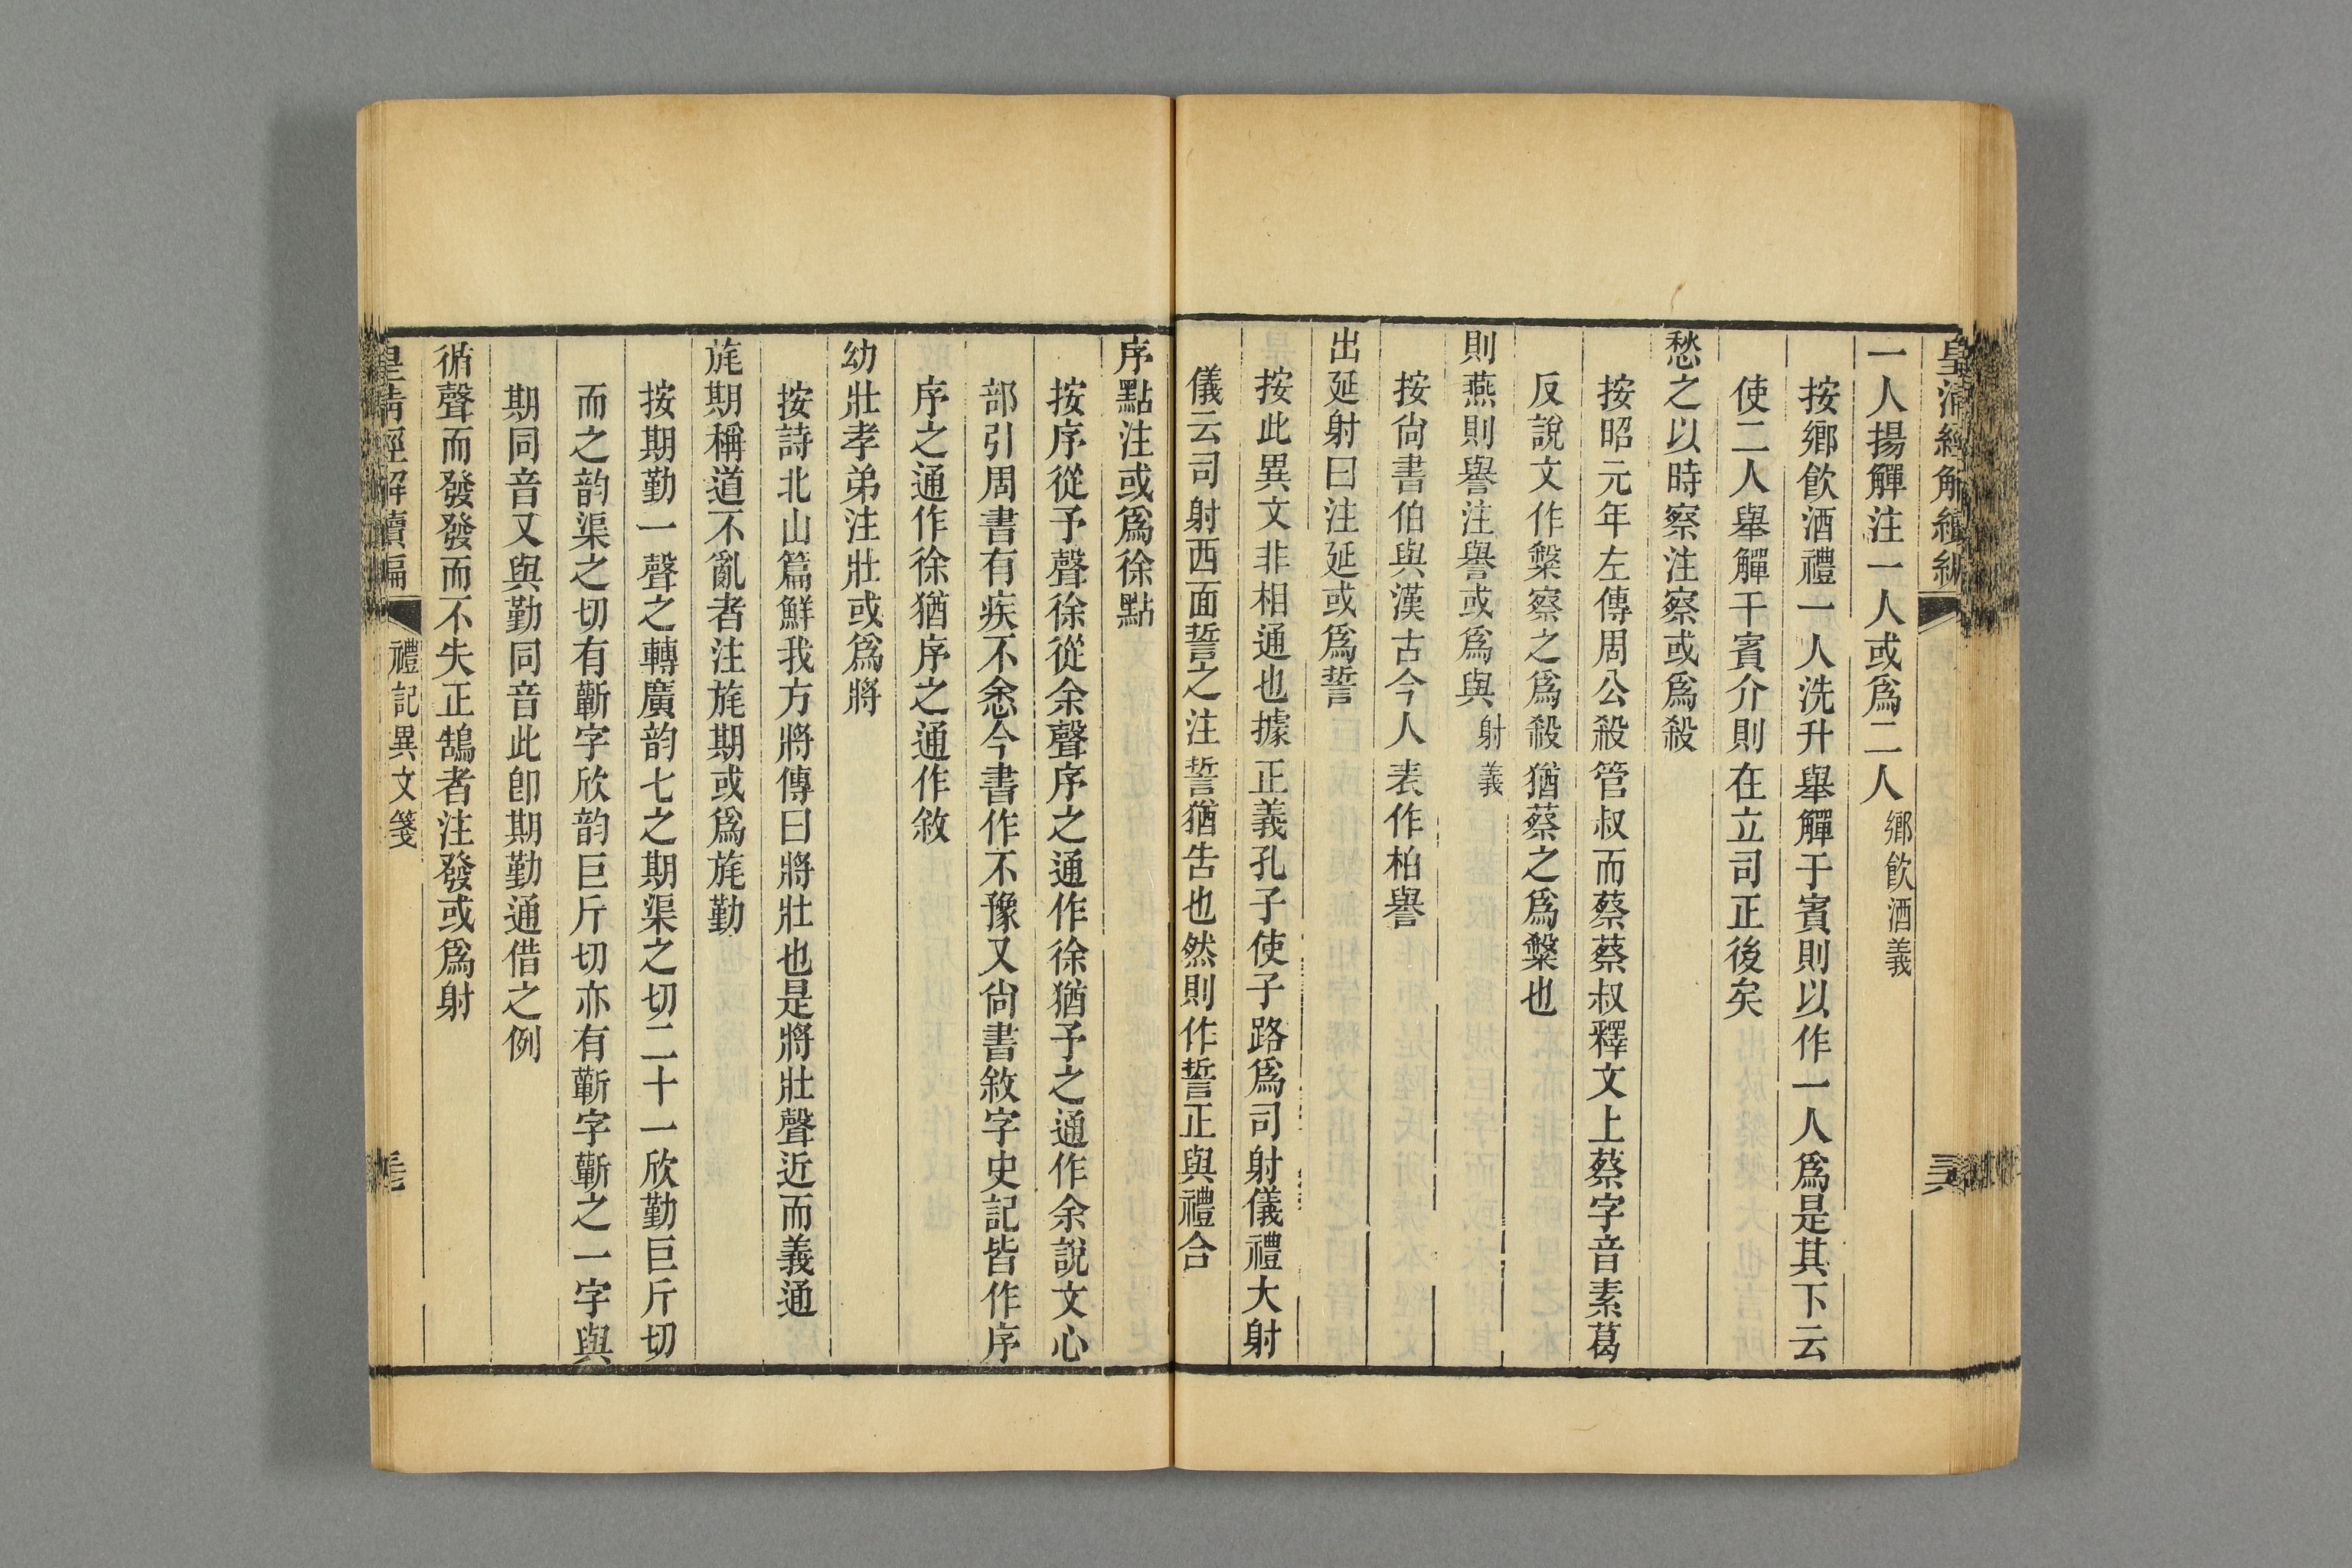 皇清經解續編
一人揚觶注一人或爲二人鄉飲酒義
按鄉飲酒禮一人洗升舉觶于賓則以作一人爲是其下云
使二人舉觶干賓介則在立司正後矣
愁之以時察注察或爲殺
按昭元年左傳周公殺管叔而蔡蔡叔釋文上蔡字音素葛
反說文作䊝察之爲殺猶蔡之爲䊝也
則燕則譽注譽或爲與射義
按尙書伯與漢古今人表作柏譽
出延射曰注延或爲誓
按此異文非相通也據正義孔子使子路爲司射儀禮大射
儀云司射西面誓之注誓猶告也然則作誓正與禮合
序點注或爲徐點
按序從予聲徐從余聲序之通作徐猶予之通作余說文心
部引周書有疾不悆今書作不豫又尙書敘字史記皆作序
序之通作徐猶序之通作敘
幼壯孝弟注壯或爲將
按詩北山篇鮮我方將傳曰將壯也是將壯聲近而義通
旄期稱道不亂者注旄期或爲旄勤
按期勤一聲之轉廣韵七之期渠之切二十一欣勤巨斤切
而之韵渠之切有蘄字欣韵巨斤切亦有蘄字蘄之一字與
期同音又與勤同音此卽期勤通借之例
循聲而發發而不失正鵠者注發或爲射
皇清經解續編
禮記異文箋